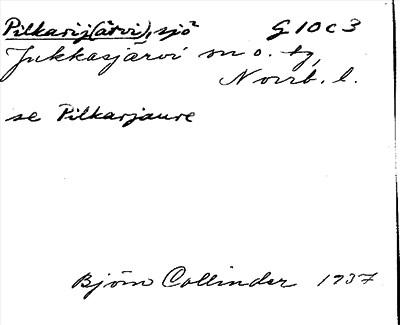 Pilkarij(ärvi), sjö² G10c3
Jukkasjärvi sn o. tg,
Norrb. l.
se Pilkarjaure
Björn Collinder 1937